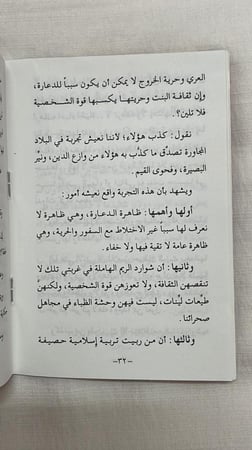 العري وحرية الخروج لا يمكن أن يكون سبباً للدعارة،
وإن ثقافة البنت وحريتها يكسبها قوة الشخصية
فلا تلين؟.
نقول: كذب هؤلاء؛ لأننا نعيش تجربة في البلاد
المجاورة تصدق ما كذَّب به هؤلاء من وازع الدين، ونيّر
البصيرة، وفحوى القيم.
ويشهد بأن هذه التجربة واقع نعيشه أمور:
أولها وأهمها: ظاهرة الدعارة، وهي ظاهرة لا
نعرف لها سبباً غير الاختلاط مع السفور والحرية، وهي
ظاهرة عامة لا تقية فيها ولا خفاء.
وثانيها: أن شوارد الريم الهاملة في غربتي تلك لا
تنقصهن الثقافة، ولا تعوزهن قوة الشخصية، ولكنهنَّ
طيِّعات ليِّنات، ليست فيهن وحشة الظباء في مجاهل
صحرائنا.
وثالثها: أن من ربيت تربية إسلامية حصيفة
-٣٢-